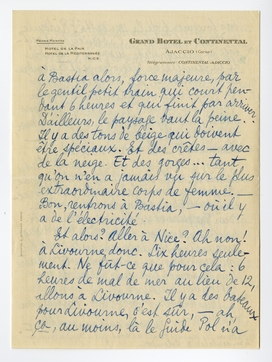 MÊME MAISON
HOTEL DE LA PAIX
HOTEL DE LA MÉDITERRANÉE
NICE
GRAND HOTEL ET CONTINENTAL
AJACCIO (Corse)
CONTINENTAL-AJACCIO
à Bastia alors, force majeure, par
le gentil petit train qui court pen-
dant 6 heures et qui finit par arriver.
D'ailleurs, le paysage vaut la peine!
Il y a des tons de beige qui doivent
être spéciaux. Et des crêtes — avec
de la neige. Et des gorges... tant
qu'on n'en a jamais vu sur le plus
extraordinaire corps de femme. —
Bon, rentrons à Bastia! — où il y
a de l'électricité
Et alors? Aller à Nice? Ah non!
à Livourne, donc. Six heures seule-
ment. Ne fût-ce que pour cela: 6
heures de mal de mer au lieu de 12,
allons à Livourne. Il y a des bateaux
pour Livourne, c'est sûr, — ah,
ça, au moins, là le guide Pol n'a